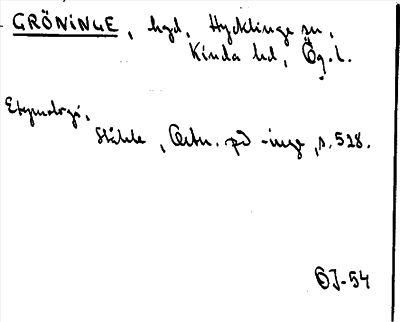 GRÖNINGE, hgd, Hycklinge sn,
Kinda hd, Ög. l.
Etymologi.
Ståhle, Ortn. på -inge, s. 528.
ÖJ-54